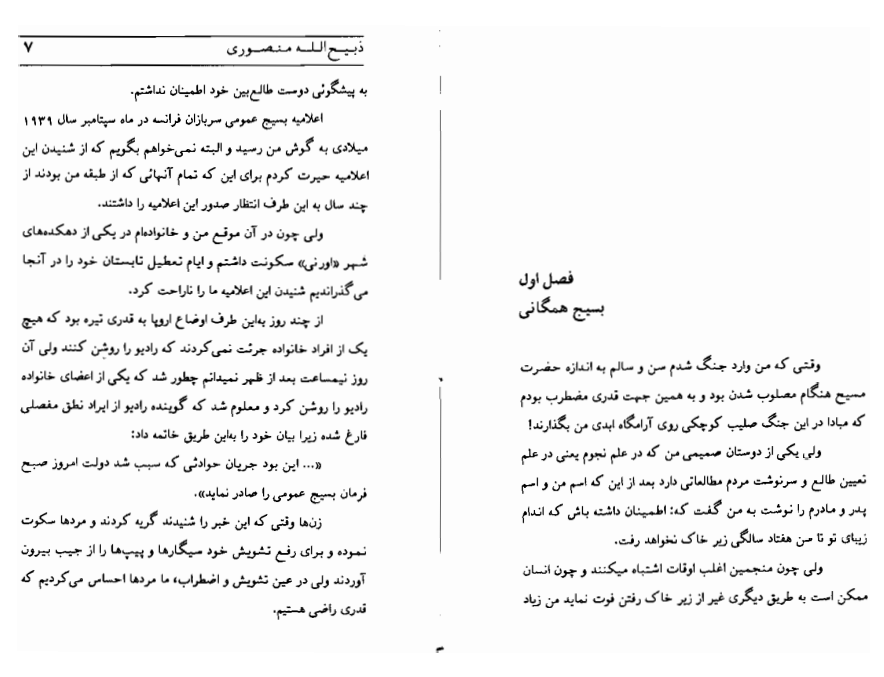 فصل اول
بسیج همگانی
وقتی که من وارد جنگ شدم سن و سالم به اندازه حضرت
مسیح هنگام مصلوب شدن بود و به همین جهت قدری مضطرب بودم
که مبادا در این جنگ صلیب کوچکی روی آرامگاه ابدی من بگذارند!
ولی یکی از دوستان صمیمی من که در علم نجوم یعنی در علم
تعیین طالع و سرنوشت مردم مطالعاتی دارد بعد از این که اسم من و اسم
پدر و مادرم را نوشت به من گفت که: اطمینان داشته باش که اندام
زیبای تو تا سن هفتاد سالگی زیر خاک نخواهد رفت.
ولی چون منجمین اغلب اوقات اشتباه میکنند و چون انسان
ممکن است به طریق دیگری غیر از زیر خاک رفتن فوت نماید من زیاد
ذبیح‌الله منصوری ۷
به پیشگوئی دوست طالع‌بین خود اطمینان نداشتم.
اعلامیه بسیج عمومی سربازان فرانسه در ماه سپتامبر سال ۱۹۳۹
میلادی به گوش من رسید و البته نمی‌خواهم بگویم که از شنیدن این
اعلامیه حیرت کردم برای این که تمام آنهائی که از طبقه من بودند از
چند سال به این طرف انتظار صدور این اعلامیه را داشتند.
ولی چون در آن موقع من و خانواده‌ام در یکی از دهکده‌های
شهر «اورنی» سکونت داشتم و ایام تعطیل تابستان خود را در آنجا
می‌گذراندیم شنیدن این اعلامیه ما را ناراحت کرد.
از چند روز به‌این طرف اوضاع اروپا به قدری تیره بود که هیچ
یک از افراد خانواده جرئت نمی‌کردند که رادیو را روشن کنند ولی آن
روز نیمساعت بعد از ظهر نمیدانم چطور شد که یکی از اعضای خانواده
رادیو را روشن کرد و معلوم شد که گوینده رادیو از ایراد نطق مفصلی
فارغ شده زیرا بیان خود را به‌این طریق خاتمه داد:
«... این بود جریان حوادثی که سبب شد دولت امروز صبح
فرمان بسیج عمومی را صادر نماید».
زن‌ها وقتی که این خبر را شنیدند گریه کردند و مردها سکوت
نموده و برای رفع تشویش خود سیگارها و پیپ‌ها را از جیب بیرون
آوردند ولی در عین تشویش و اضطراب، ما مردها احساس می‌کردیم که
قدری راضی هستیم.